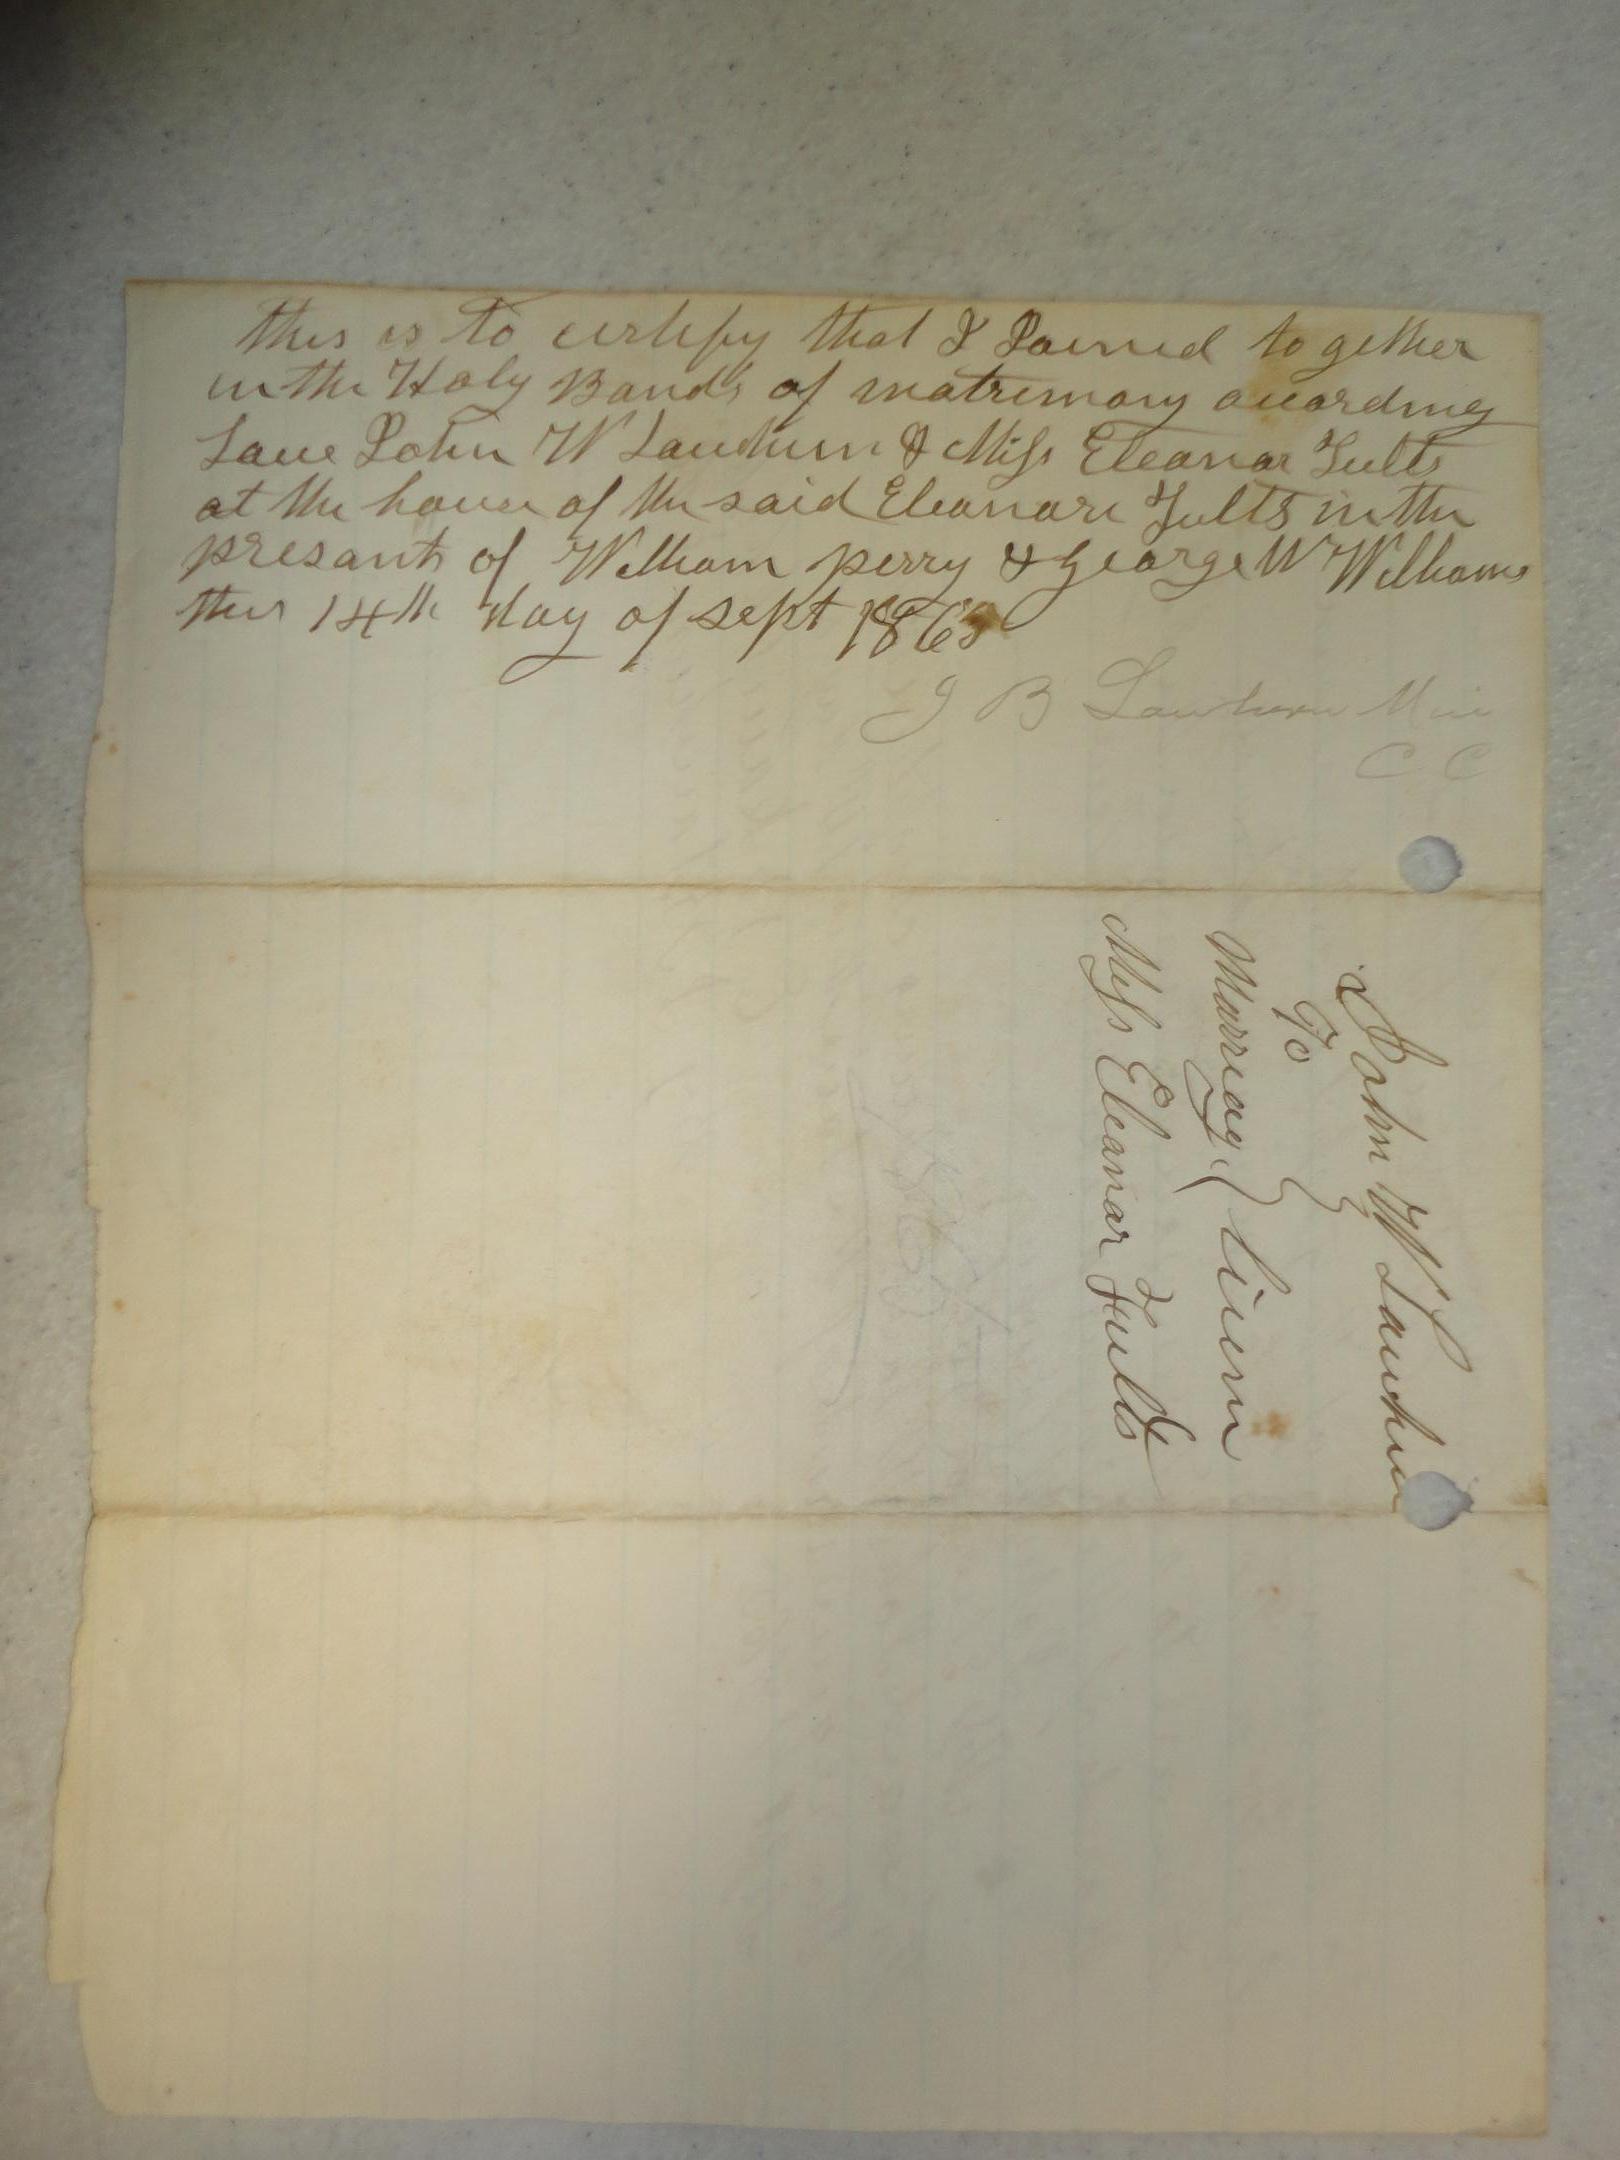 this is to certify that I Joined to gether
in the Holy Bands of matrimony according
Law John W Lawhun & Miss Eleanor Fults
at the house of the said Eleanore Fults in the
presants of William perry & George W Williams
this 14th day of sept 1865
J B Lawhun Min
C C
John W Lawhun
To
Marriag Licens
Miss Eleanor Fults
1865